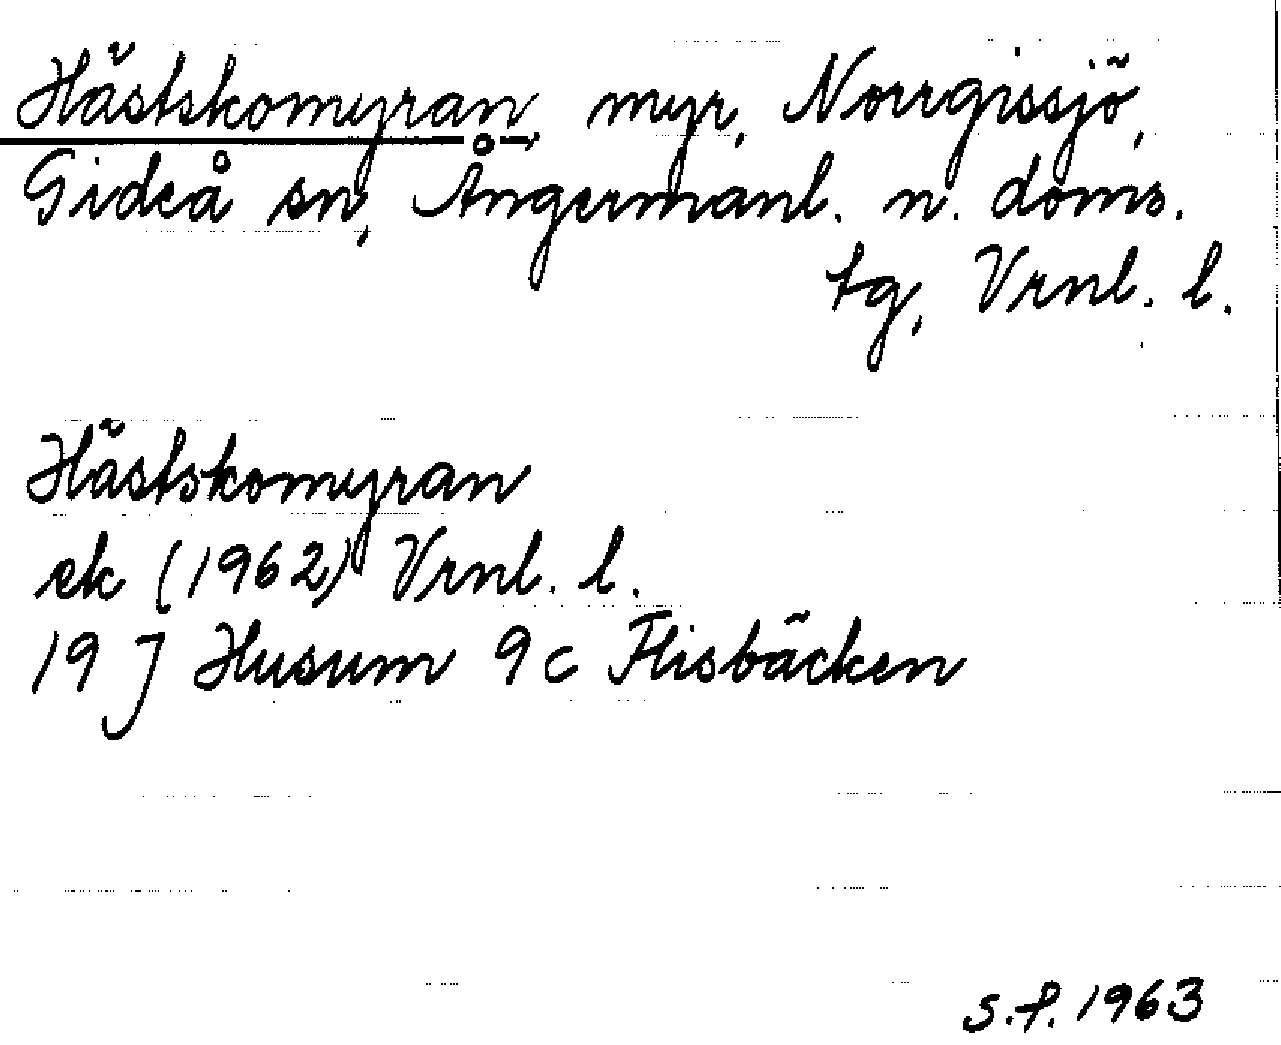 Hästskomyran, myr, Norrgissjö,
Gideå sn, Ångermanl. n. doms.
tg, Vrnl. l.
Hästskomyran
ek (1962) Vrnl. l.
19 J Husum 9 c Flisbäcken
S.f. 1963